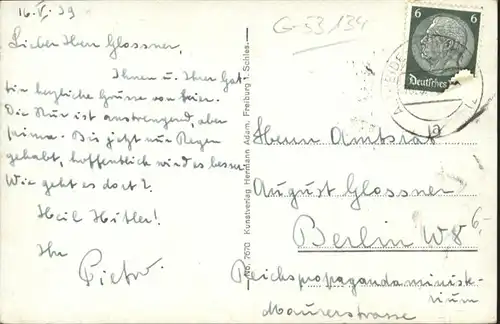 16.V.39
Lieber Herr Glossner,
Ihnen u. Ihrer Gat-
tin herzliche Grüsse von hier.
Die Kur ist anstrengend, aber
prima. Bis jetzt nur Regen
gehabt, hoffentlich wird es besser.
Wie geht es dort?
Heil Hitler!
Ihr
G-53134
No. 7670 Kunstverlag Hermann Adam, Freiburg i. Schles.
6 6
Deutsches
Herrn Amtsrat
August Glossner
Berlin W 8
6,-
Reichspropagandaminist-
rium
Mauerstrasse